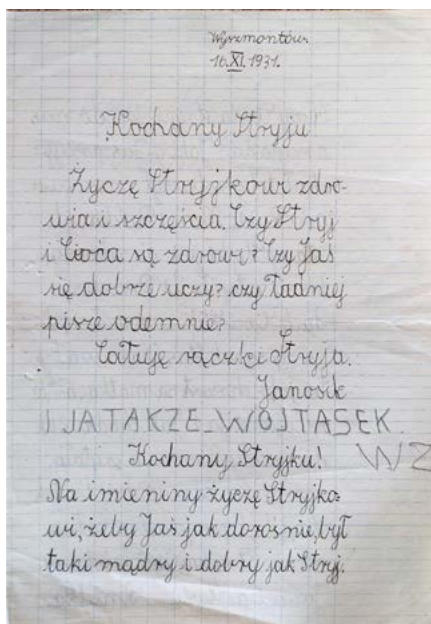 Wyszmontów.
16.XI.1931.
Kochany Stryju
Życzę Stryjkowi zdro-
wia i szczęścia. Czy Stryj
i Ciocia są zdrowi? Czy Jaś
się dobrze uczy? czy ładniej
pisze odemnie?
Całuję rączki Stryja.
Janosik
I JA TAKZE_WOJTASEK.
WZ
Kochany Stryjku!
Na imieniny życzę Stryjko-
wi, żeby Jaś jak dorośnie, był
taki mądry i dobry jak Stryj.